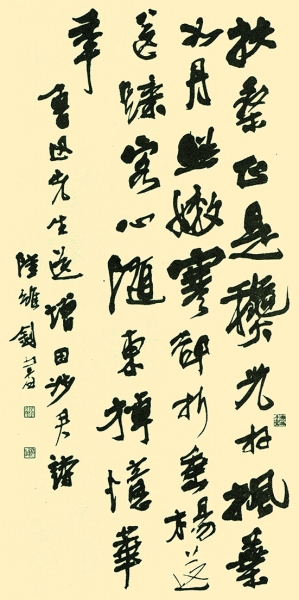 扶桑正是穐光好楓葉
如丹照嫩寒卻折垂楊送
送歸客心隨東棹憶華
年
魯迅先生送增田涉君詩
陸維釗書